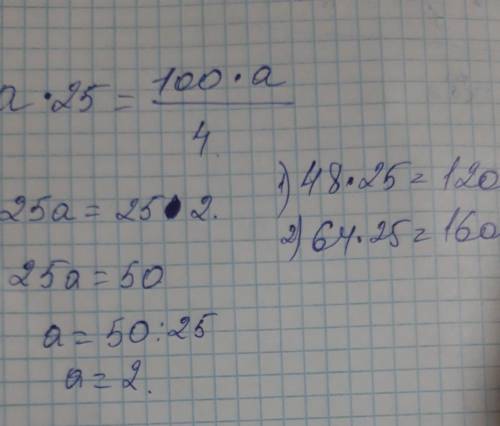 a · 25 = 100 · a / 4
25a = 25 · 2.
25a = 50
a = 50 : 25
a = 2.
1) 48 · 25 = 120
2) 64 · 25 = 160